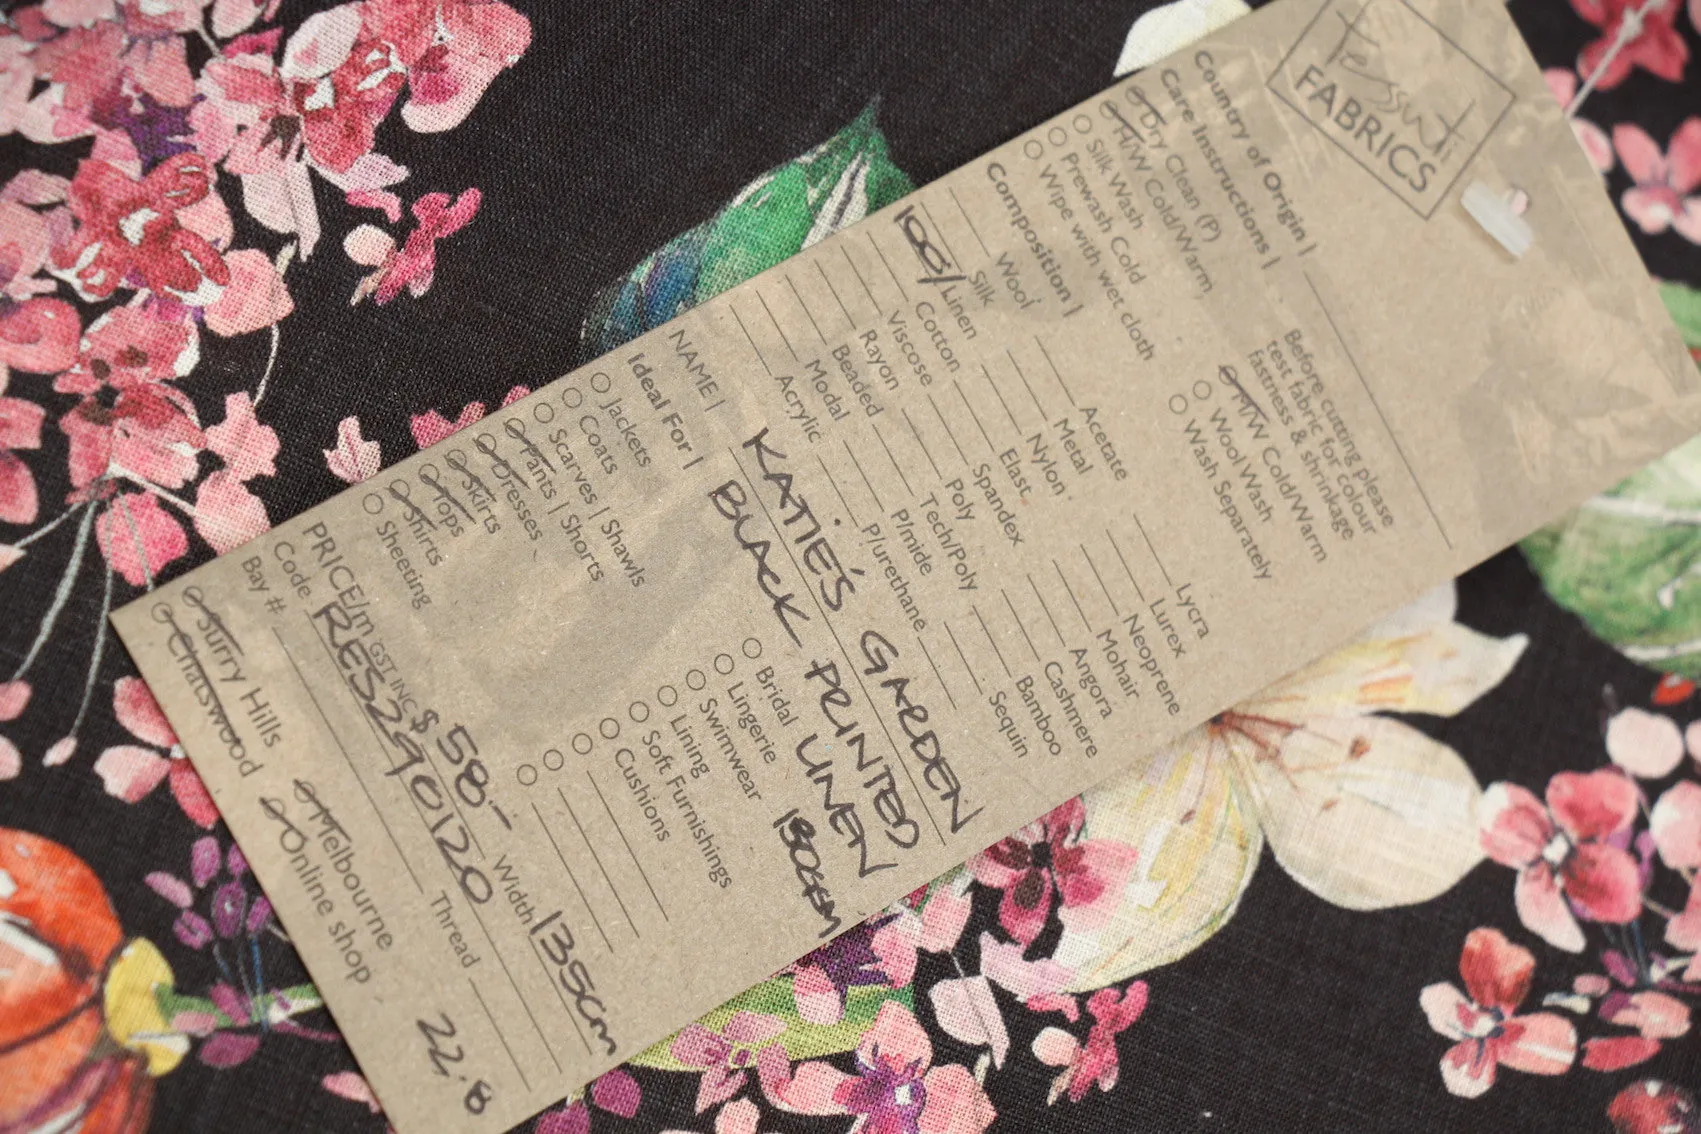 Tessuti
FABRICS
Country of Origin |
Care Instructions |
Dry Clean (P)
H/W Cold/Warm
Silk Wash
Prewash Cold
Wipe with wet cloth
Before cutting please
test fabric for colour
fastness & shrinkage
M/W Cold/Warm
Wool Wash
Wash Separately
Composition |
Wool Acetate Lycra
Silk Metal Lurex
100% Linen Nylon Neoprene
Cotton Elast Mohair
Viscose Spandex Angora
Rayon Poly Cashmere
Beaded Tech/Poly Bamboo
Modal P/mide Sequin
Acrylic P/urethane
NAME | KATIE'S GARDEN
BLACK PRINTED
LINEN
Ideal For |
Jackets
Coats
Scarves | Shawls
Pants | Shorts
Dresses
Skirts
Tops
Shirts
Sheeting
Bridal
Lingerie
Swimwear
Lining
Soft Furnishings
Cushions
PRICE/m GST INC $ 58.- Width 135cm
Code RES290120 Thread
Bay #
Surry Hills Melbourne
Chatswood Online shop
22.8